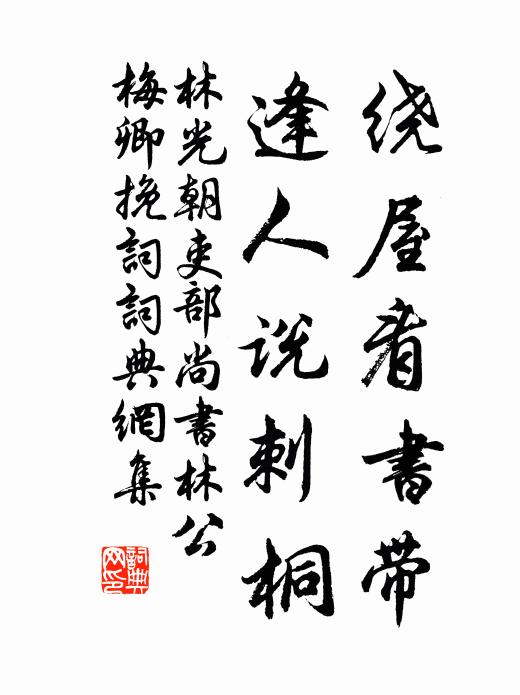 绕屋看书带
逢人说刺桐
林光朝吏部尚書林公
梅卿挽詞詞典網集
詞典網印